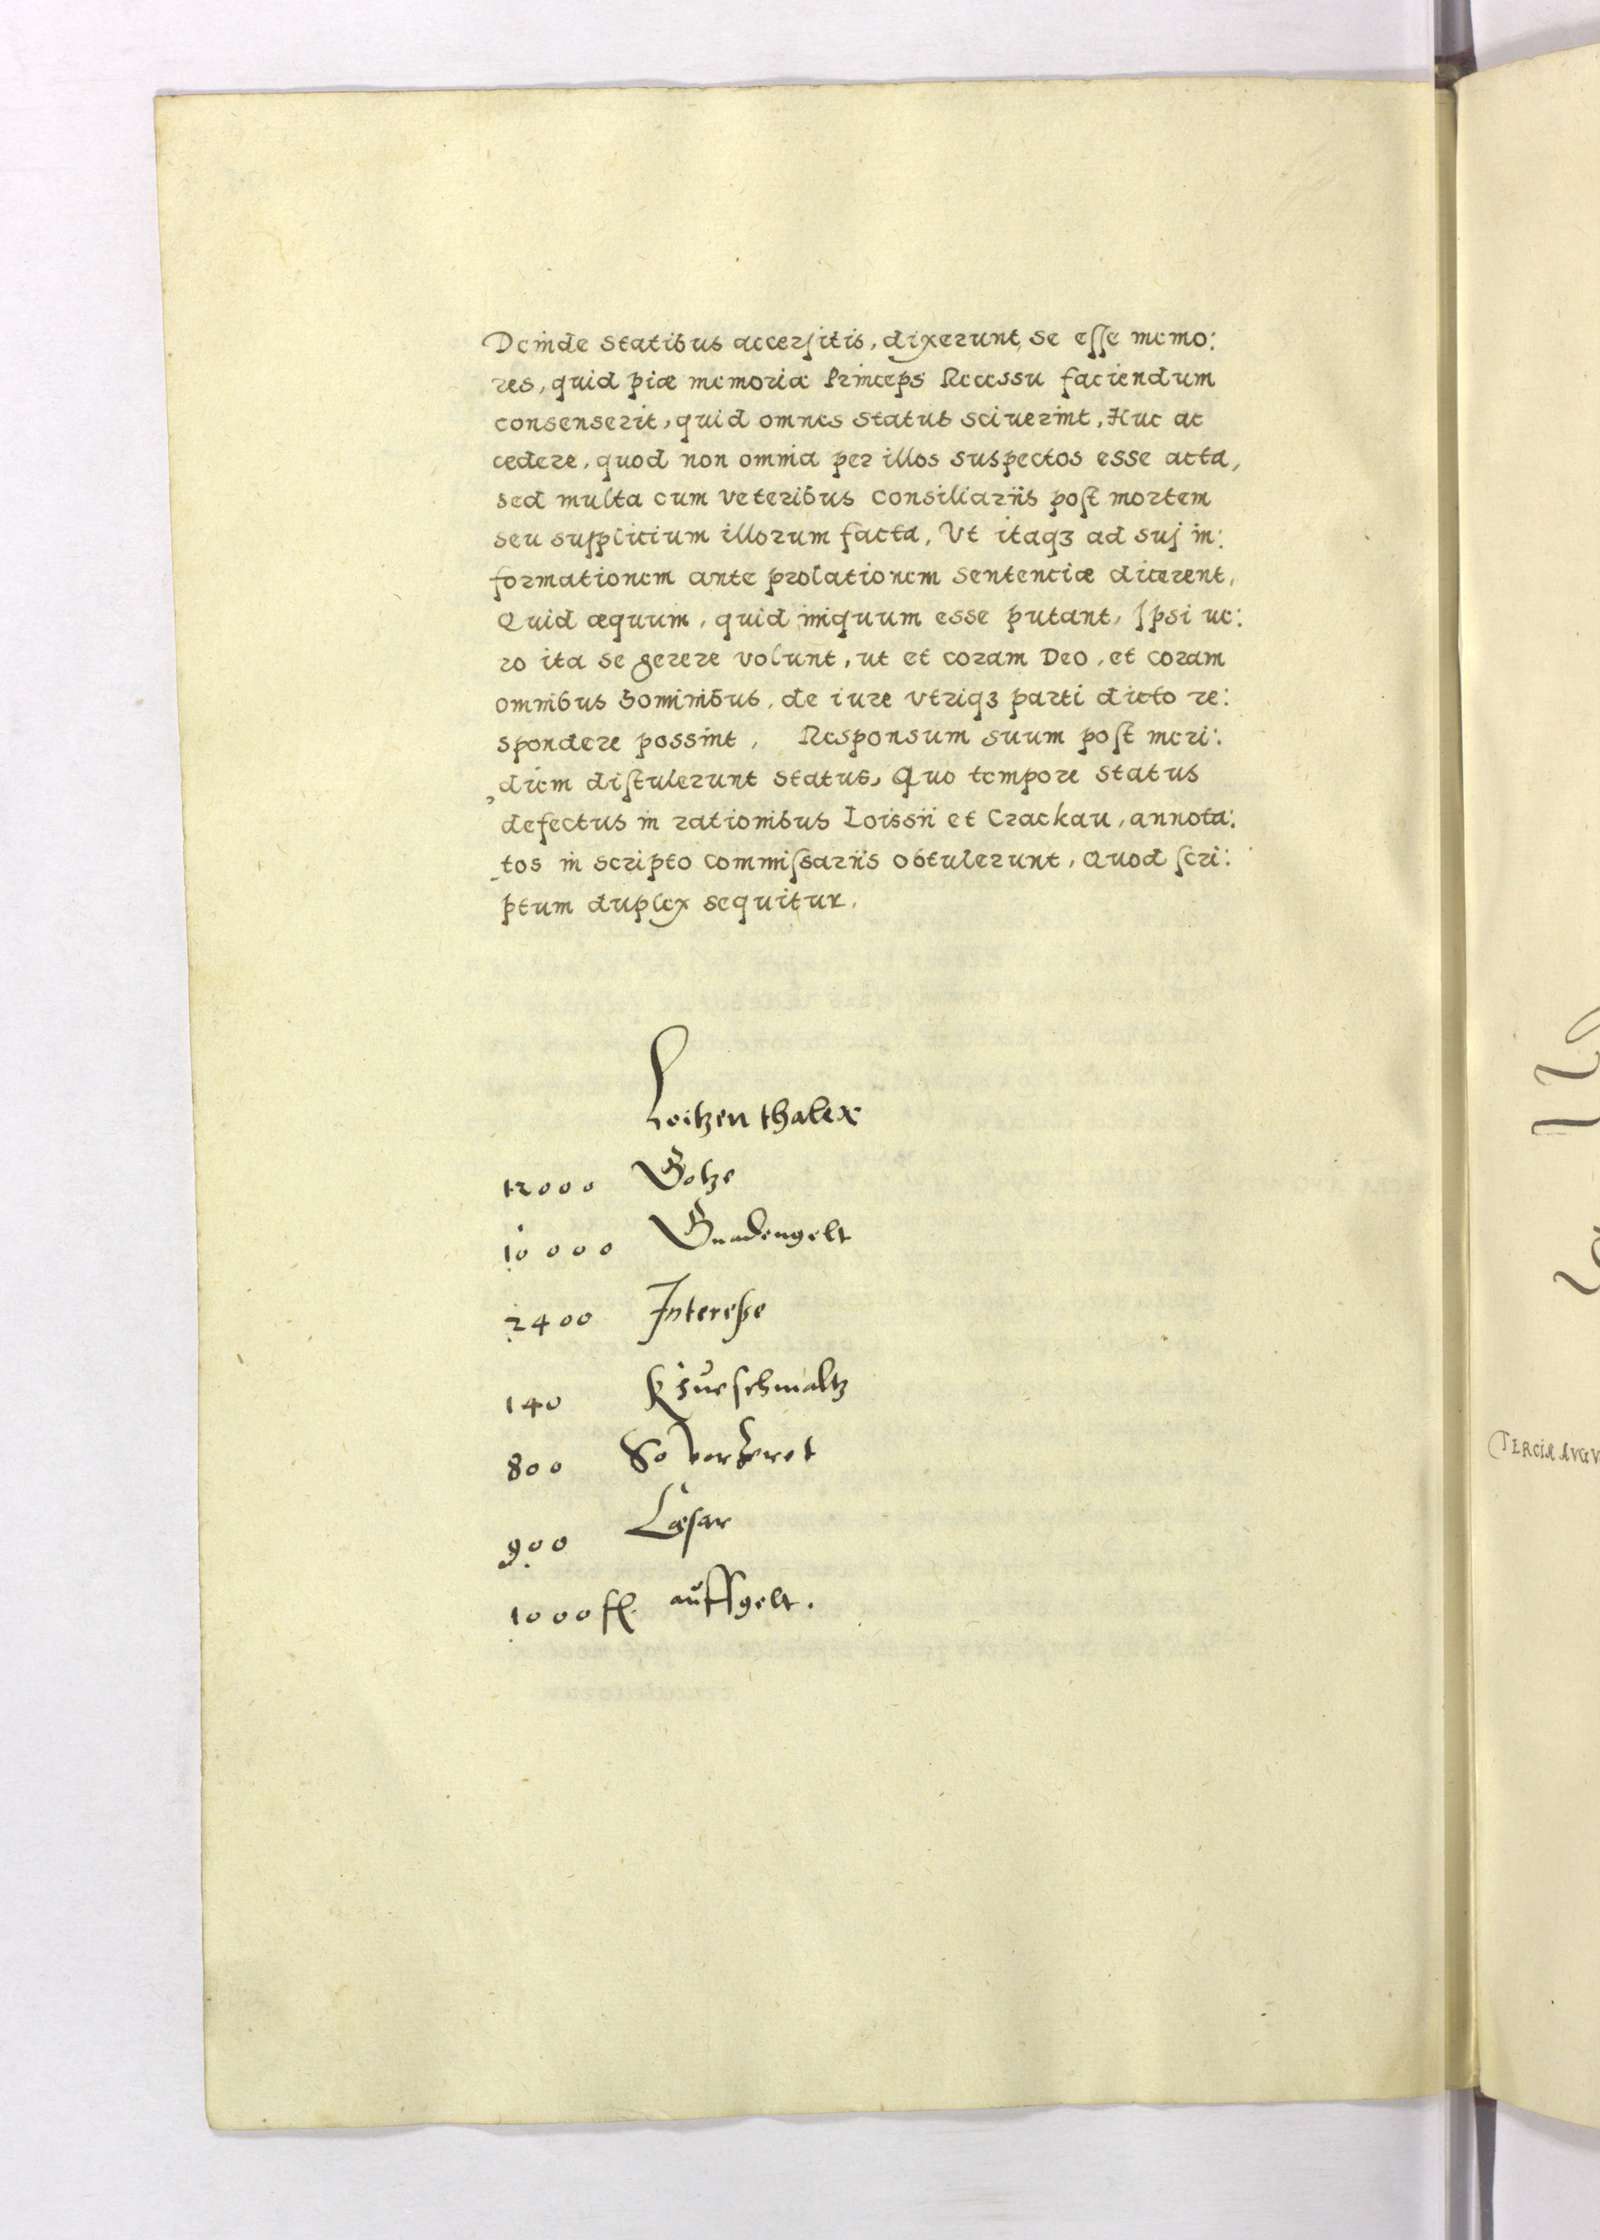 Deinde statibus accersitis, dixerunt, se esse memo:
res, quid piæ memoriæ Princeps Recessu faciendum
consenserit, quid omnes status sciuerint, Huc ac
cedere, quod non omnia per illos suspectos esse acta,
sed multa cum veteribus consiliariis post mortem
seu supplicium illorum facta, Vt itaqȝ ad suj in:
formationem ante prolationem sentenciæ dicerent,
Quid æquum, quid iniquum esse putant, Ipsi ue:
ro ita se gerere volunt, ut et coram Deo, et coram
omnibus hominibus, de iure vtriqȝ parti dicto re:
spondere possint, Responsum suum post meri:
diem distulerunt status, Quo tempore status
defectus in rationibus Loissii et Crackau, annota:
tos in scripto commissariis obtulerunt, Quod scri:
ptum duplex sequitur.
Loitzen thaler
12000 Gotze
10000 Gnadengelt
2400 Interesse
140
800 So vorkeret
900 Cæsar
1000 fl. auffgelt.
TERCIA AVGV